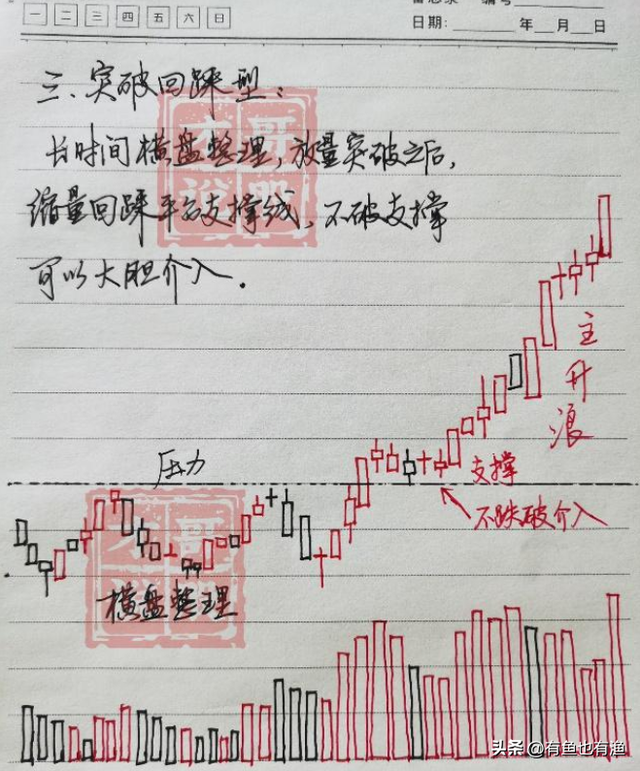 一 二 三 四 五 六 日
备忘录 编号
日期: 年 月 日
三、突破回踩型:
长时间横盘整理,放量突破之后,
缩量回踩平台支撑线,不破支撑
可以大胆介入.
主升浪
压力
支撑
不跌破介入
横盘整理
头条 @有鱼也有渔